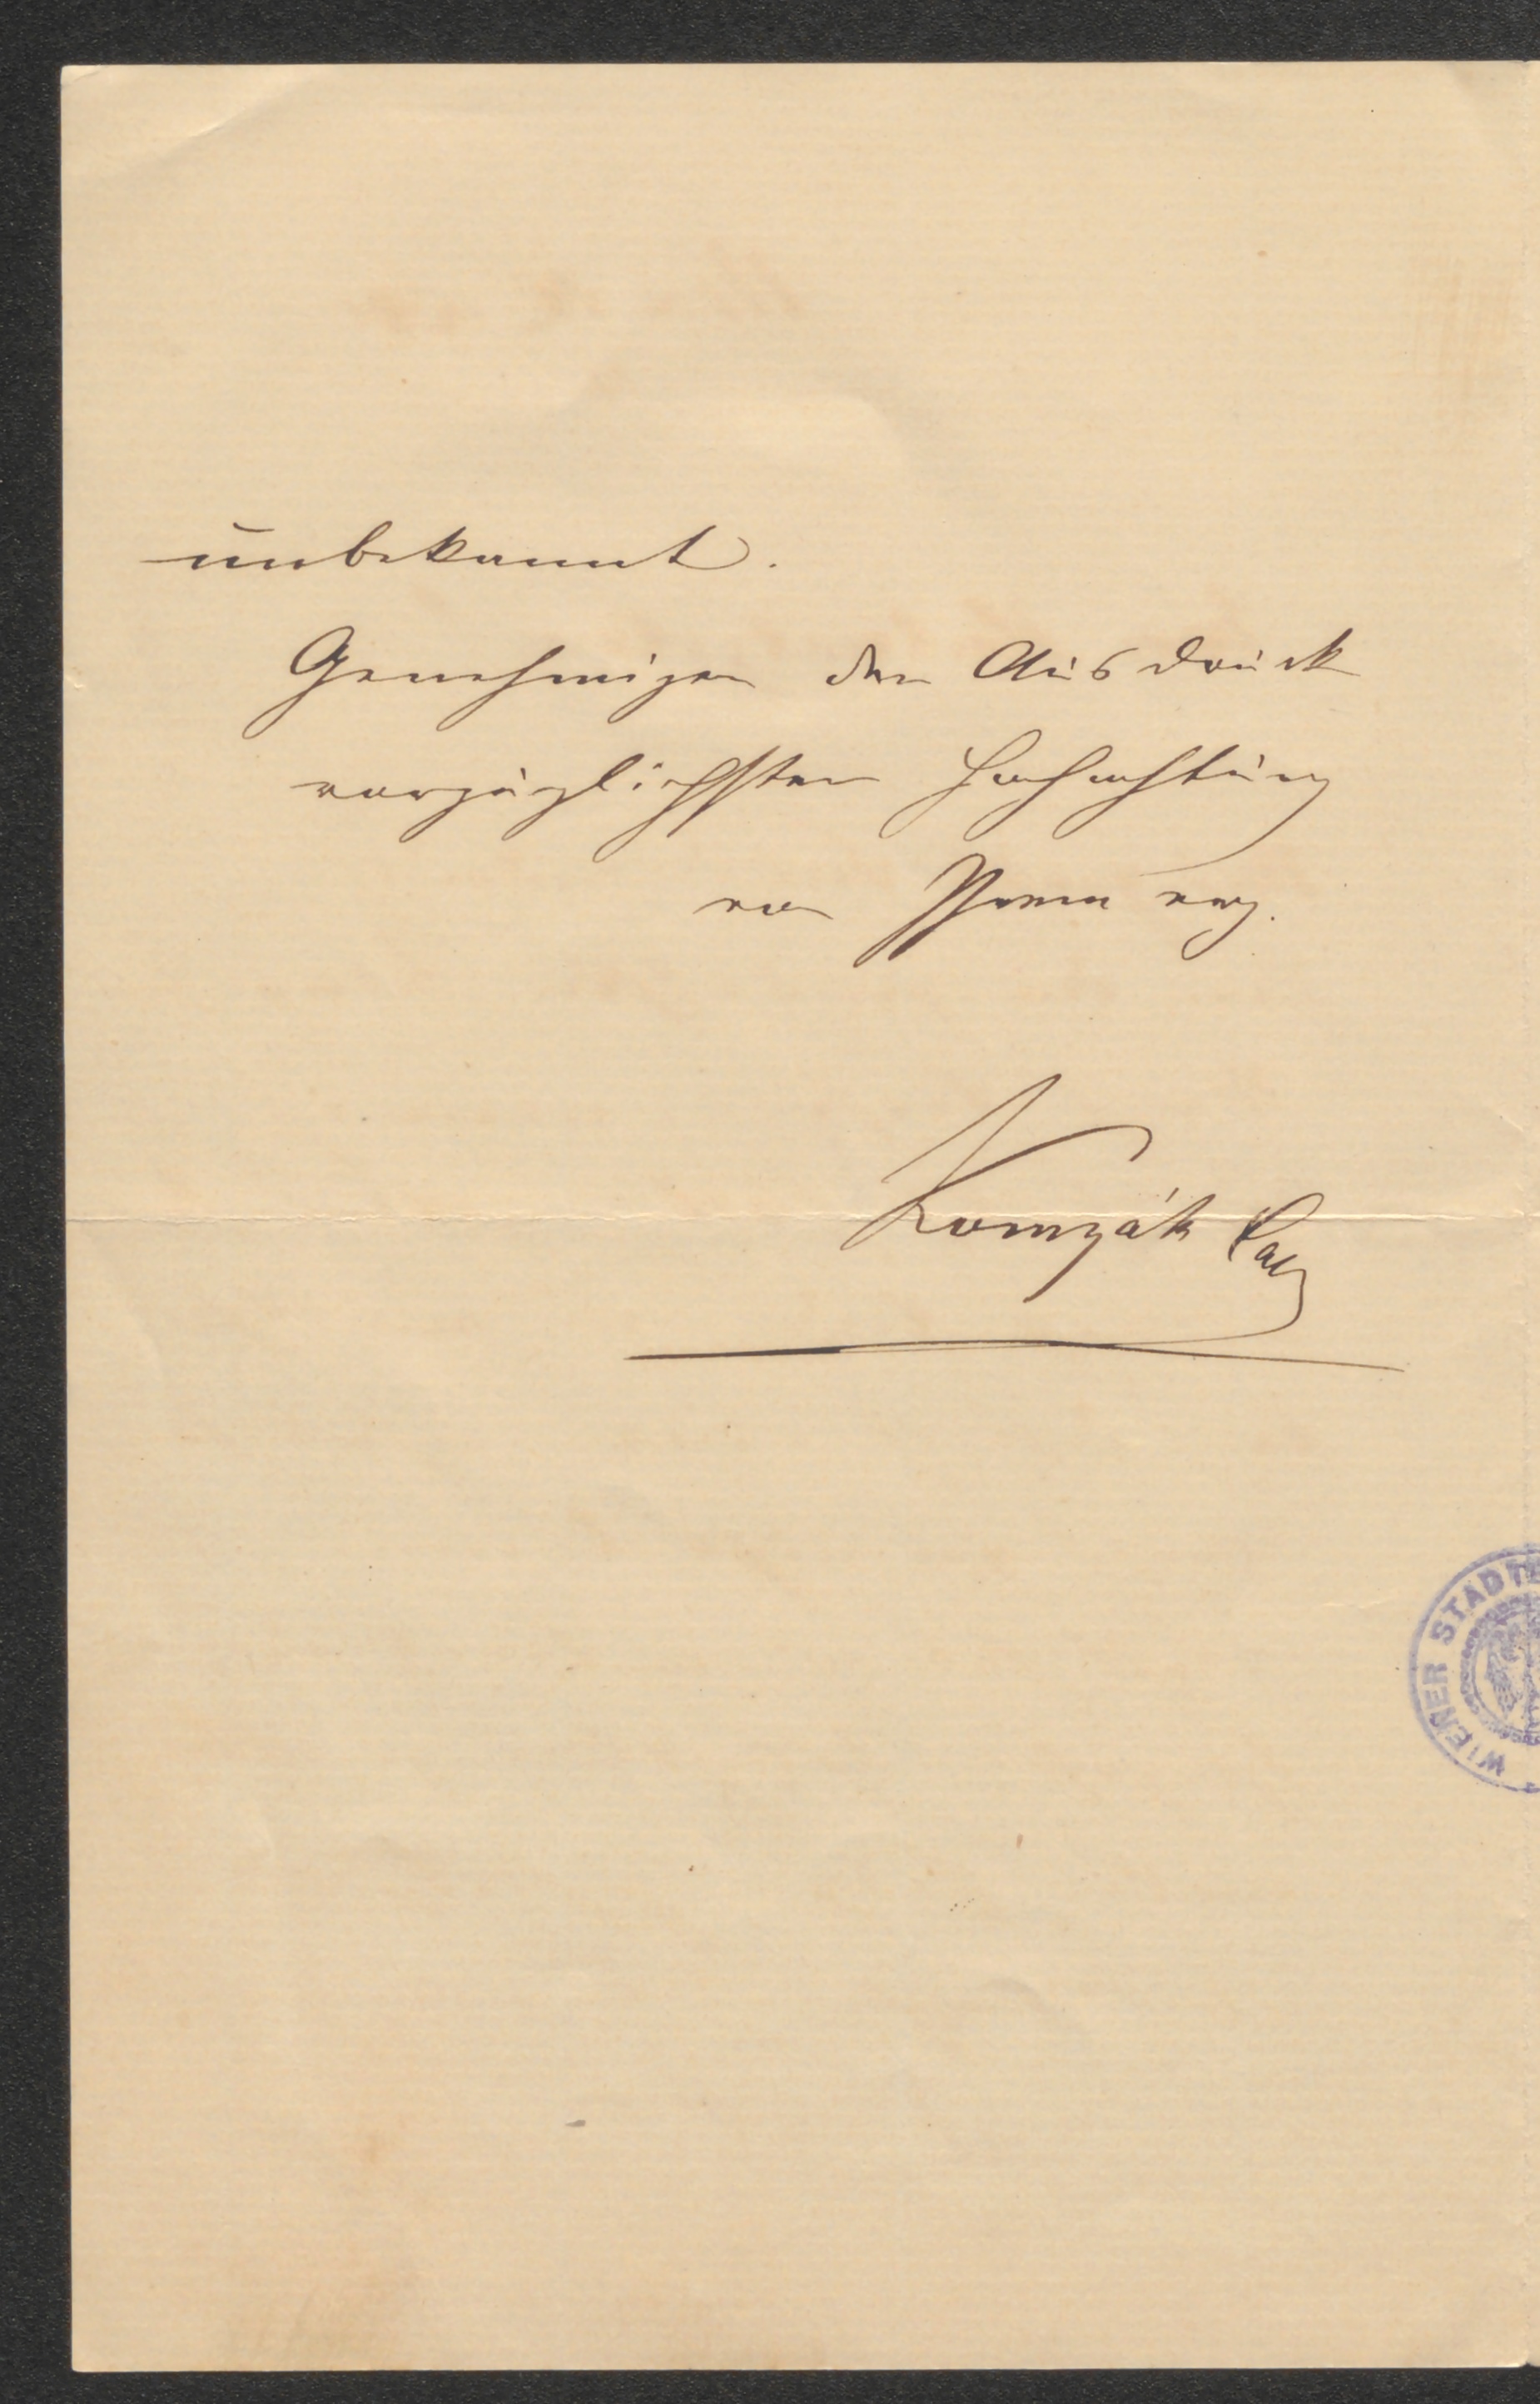 unbekannt.
Genehmigen den Ausdruck
vorzüglichster Hochachtung
von Ihrem erg.
Komzák
WIENER STADTB